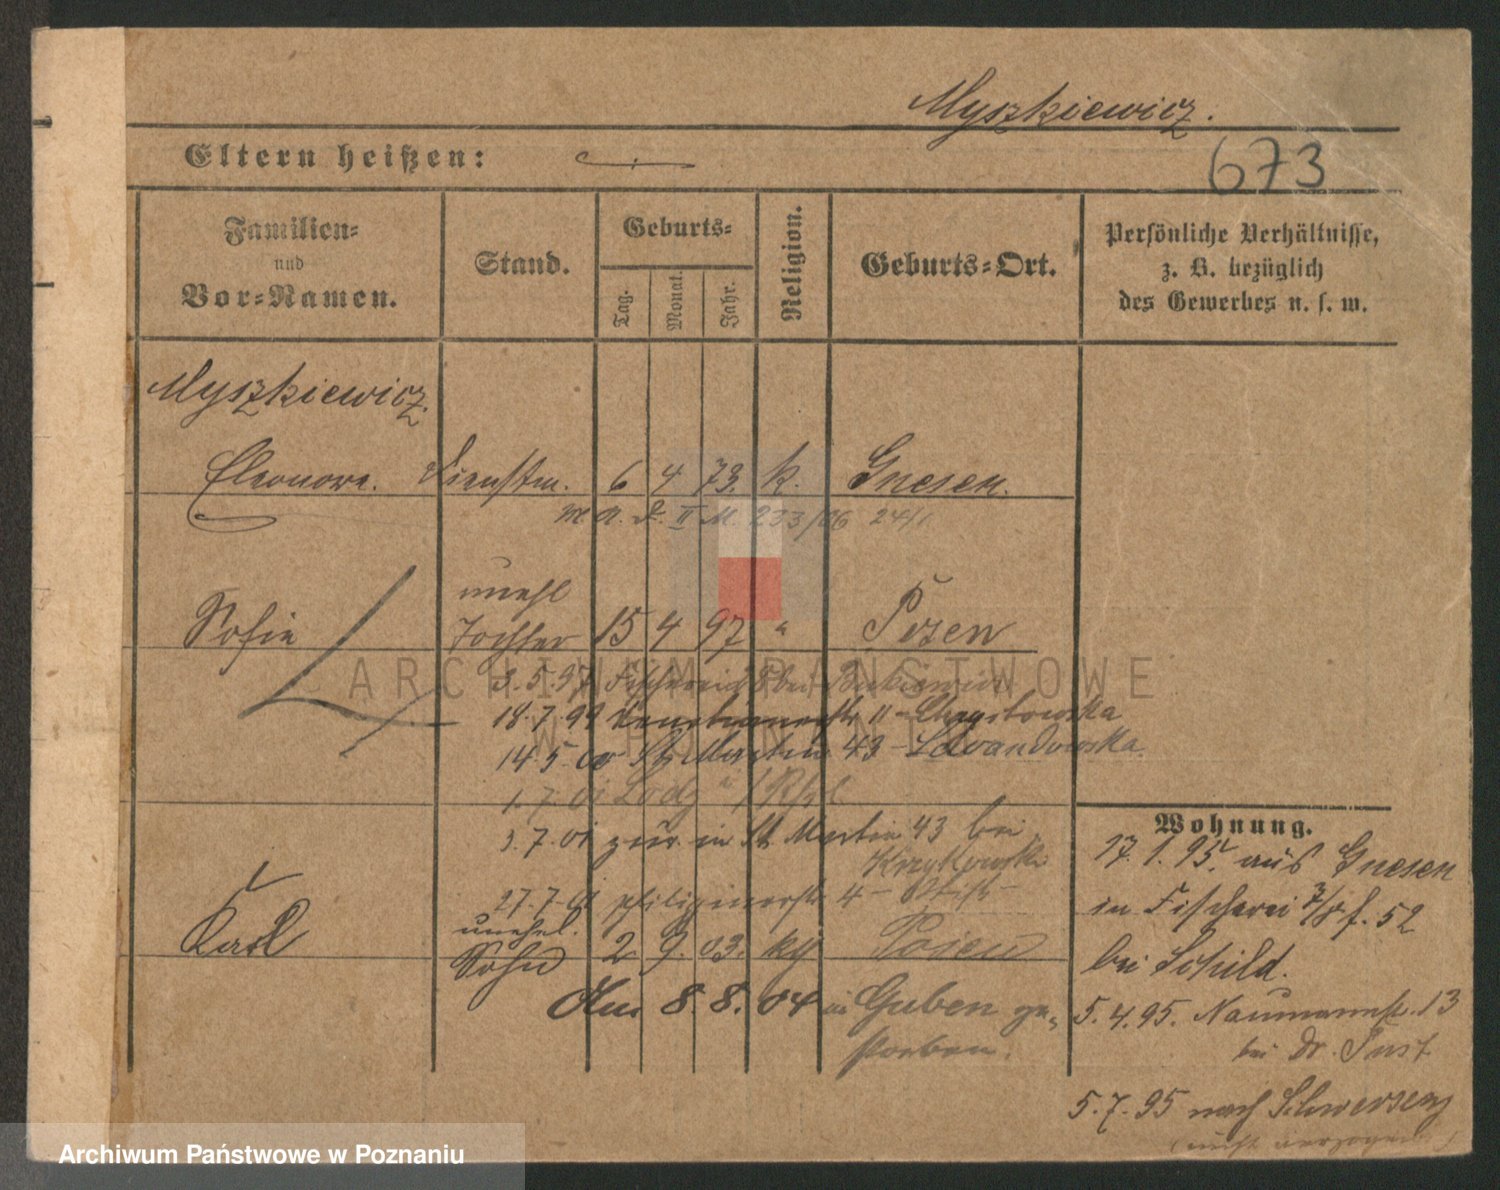 Myszkiewicz.
673
Eltern heißen:
Familien=
und
Vor=Namen.
Stand.
Geburts=
Tag.
Monat.
Jahr.
Religion.
Geburts=Ort.
Persönliche Verhältnisse,
z. B. bezüglich
des Gewerbes u. s. w.
Myszkiewicz.
Eleonore. Dienstm. 6 4 73. k. Gnesen.
II M. 233/06 24/1
unehl
Sofie Tochter 15 4 97 " Posen
3.5.97 Fischerei 8 bei
18.7.99 11 - Chrystowska
14.5.00 St. Martin 43 - Lewandowska
1.7.01 Lodz
3.7.01 zur. in St. Martin 43 bei
27.7.01 4 -
unehel.
Karl Sohn 2 9. 03. kg Posen
Am 8.8.04 in Guben ge-
storben.
Wohnung.
17.1.95. aus Gnesen
in Fischerei 52
bei Schild.
5.4.95. Naumannstr. 13
bei Dr. Just
5.7.95 nach Schwersenz
ARCHIWUM PAŃSTWOWE
W POZNANIU
Archiwum Państwowe w Poznaniu